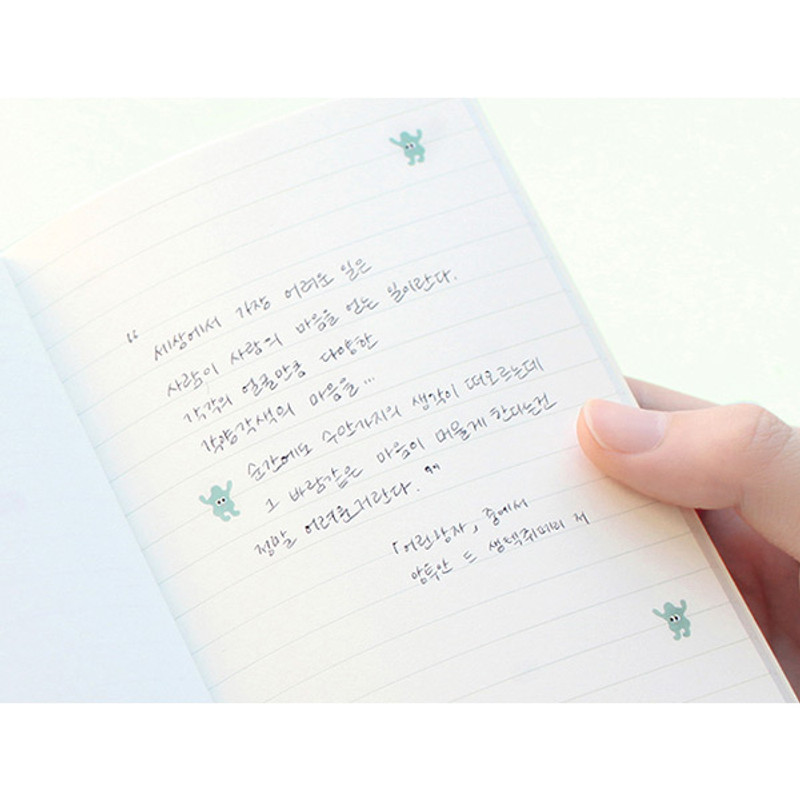 “ 세상에서 가장 어려운 일은
사람이 사람의 마음을 얻는 일이란다.
각각의 얼굴만큼 다양한
각양각색의 마음을...
순간에도 수만가지의 생각이 떠오르는데
그 바람같은 마음이 머물게 한다는건
정말 어려운거란다. ”
「어린왕자」 중에서
앙투안 드 생텍쥐페리 저